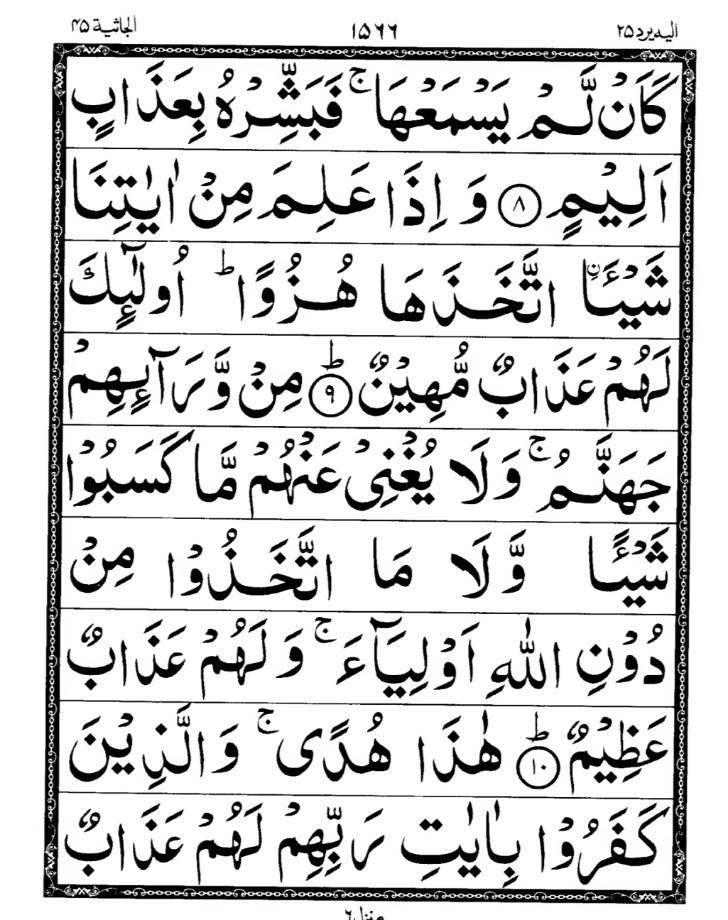 الیه یرد ۲۵ ۱۵۶۶ الجاثیة ۴۵
كَاَنْ لَّمْ یَسْمَعْهَا ۚ فَبَشِّرْهُ بِعَذَابٍ
اَلِیْمٍ ﴿۸﴾ وَ اِذَا عَلِمَ مِنْ اٰیٰتِنَا
شَیْـَٔاۨ اتَّخَذَهَا هُزُوًا ؕ اُولٰٓىِٕكَ
لَهُمْ عَذَابٌ مُّهِیْنٌ ؕ﴿۹﴾ مِنْ وَّرَآىِٕهِمْ
جَهَنَّمُ ۚ وَلَا یُغْنِیْ عَنْهُمْ مَّا كَسَبُوْا
شَیْـًٔا وَّلَا مَا اتَّخَذُوْا مِنْ
دُوْنِ اللّٰهِ اَوْلِیَآءَ ۚ وَلَهُمْ عَذَابٌ
عَظِیْمٌ ؕ﴿۱۰﴾ هٰذَا هُدًی ۚ وَالَّذِیْنَ
كَفَرُوْا بِاٰیٰتِ رَبِّهِمْ لَهُمْ عَذَابٌ
منزل ۶